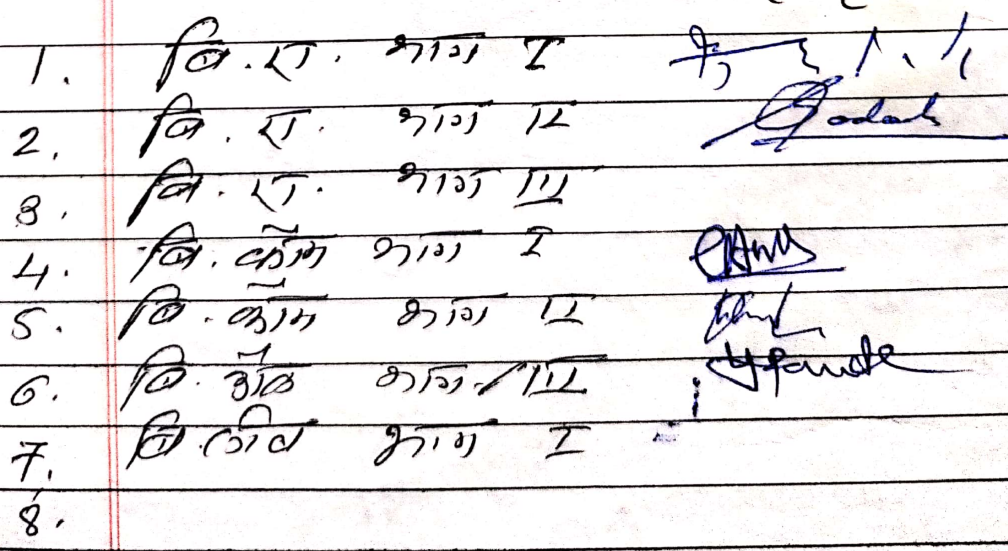 1. बि.ए. भाग I
2. बि.ए. भाग II
3. बि.ए. भाग III
4. बि. कॉम भाग I
5. बि. कॉम भाग II
6. बि. कॉम भाग III
7. बि. लीव भाग I
8.